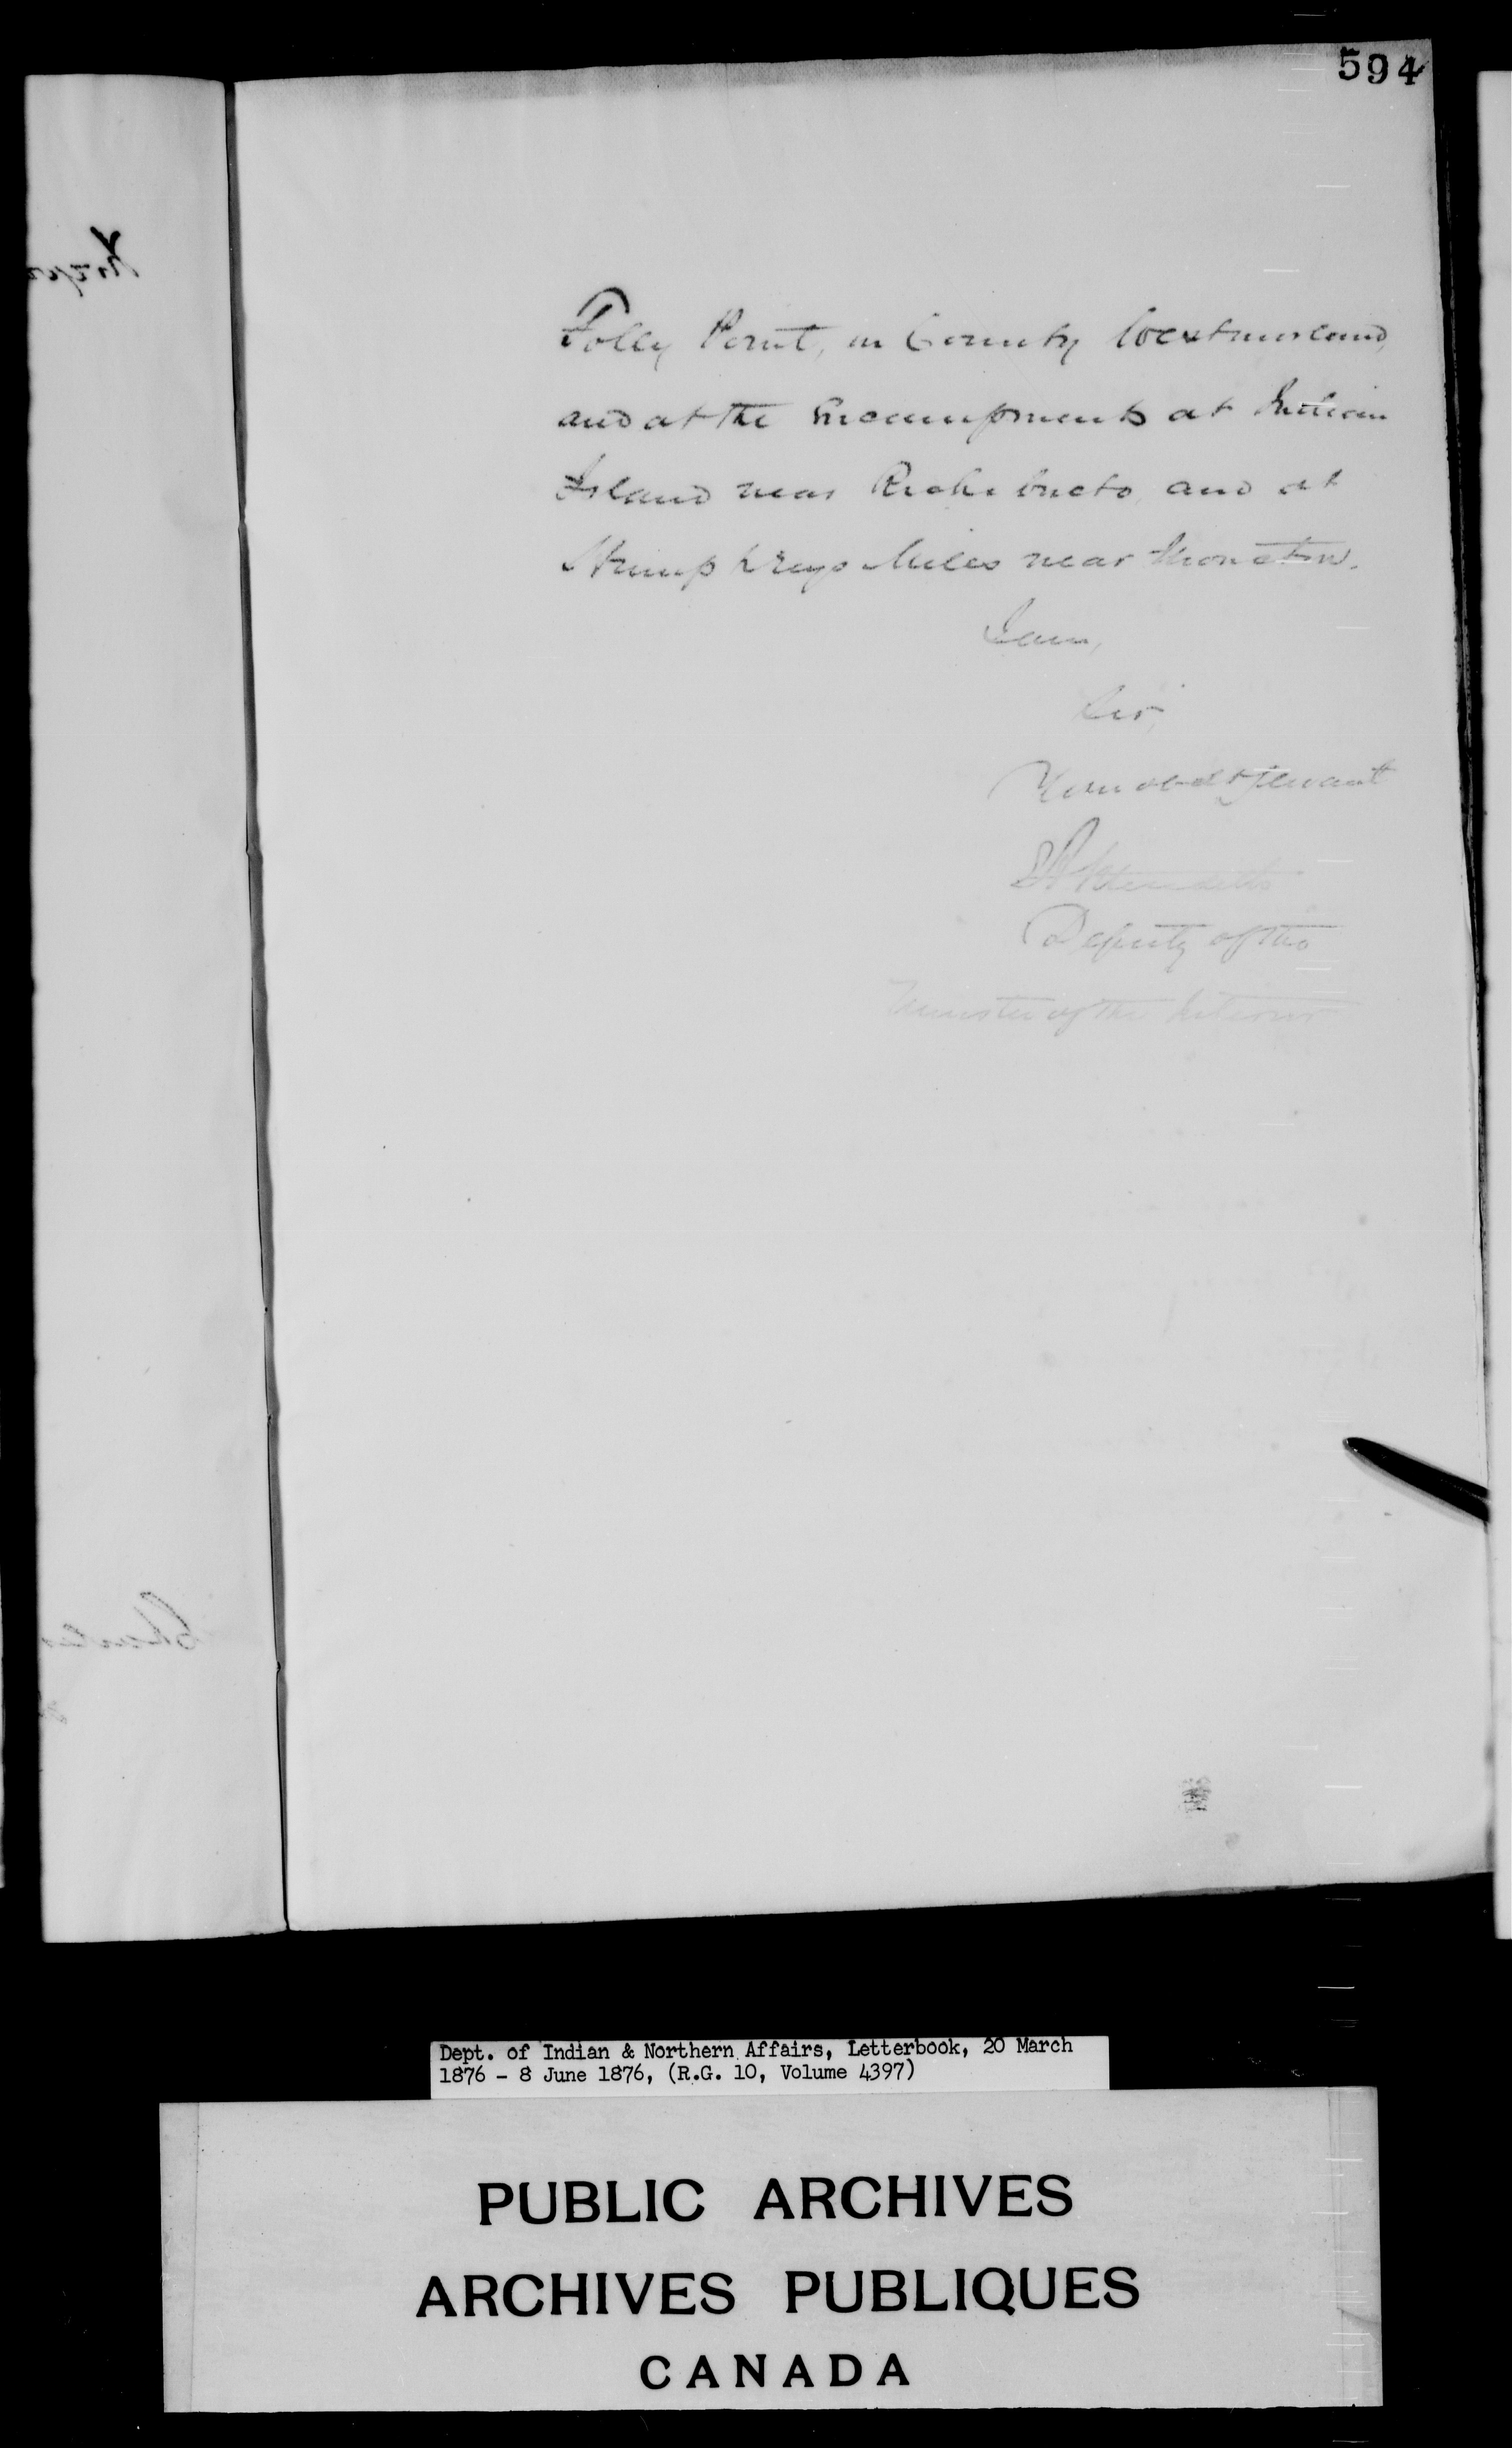 594
Folly Point, in County Westmorland,
and at the Encampments at Indian
Island near Richibucto and at
Humphreys Mills near Moncton.
I am,
Sir,
Your obedt Servant
E A Meredith
Deputy of the
Minister of the Interior
Dept. of Indian & Northern Affairs, Letterbook, 20 March
1876 - 8 June 1876, (R.G. 10, Volume 4397)
PUBLIC ARCHIVES
ARCHIVES PUBLIQUES
CANADA